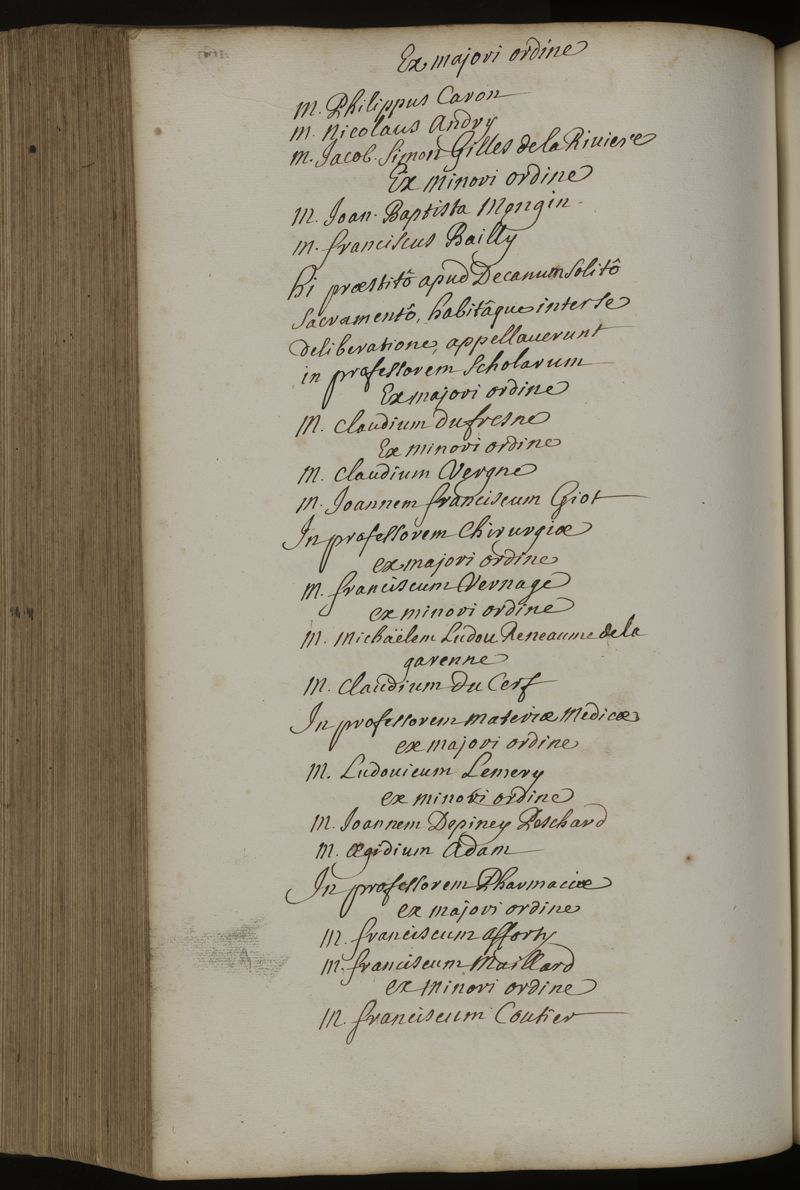 Ex majori ordine
M. Philippus Caron
M. Nicolaus Andry
M. Jacob. Simon Gilles de la Riviere
Ex minori ordine
M. Joan. Baptista Mongin
M. franciscus Bailly
hi præstitô apud Decanum solitô
sacramentô, habitâque inter se
deliberatione, appellaverunt
in professorem scholarum
Ex majori ordine
M. Claudium Dufresne
Ex minori ordine
M. Claudium Vergne
M. Joannem franciscum Giot
In professorem Chirurgiæ
ex majori ordine
M. franciscum Vernage
ex minori ordine
M. Michaëlem Ludou Reneaume de la
garenne
M. Claudium Du Cerf
In professorem materiæ Medicæ
ex majori ordine
M. Ludovicum Lemery
ex minori ordine
M. Joannem Depiney Poschard
M. Ægidium Adam
In professorem Pharmaciæ
ex majori ordine
M. franciscum afforty
M. franciscum Maillard
ex minori ordine
M. franciscum Coutier